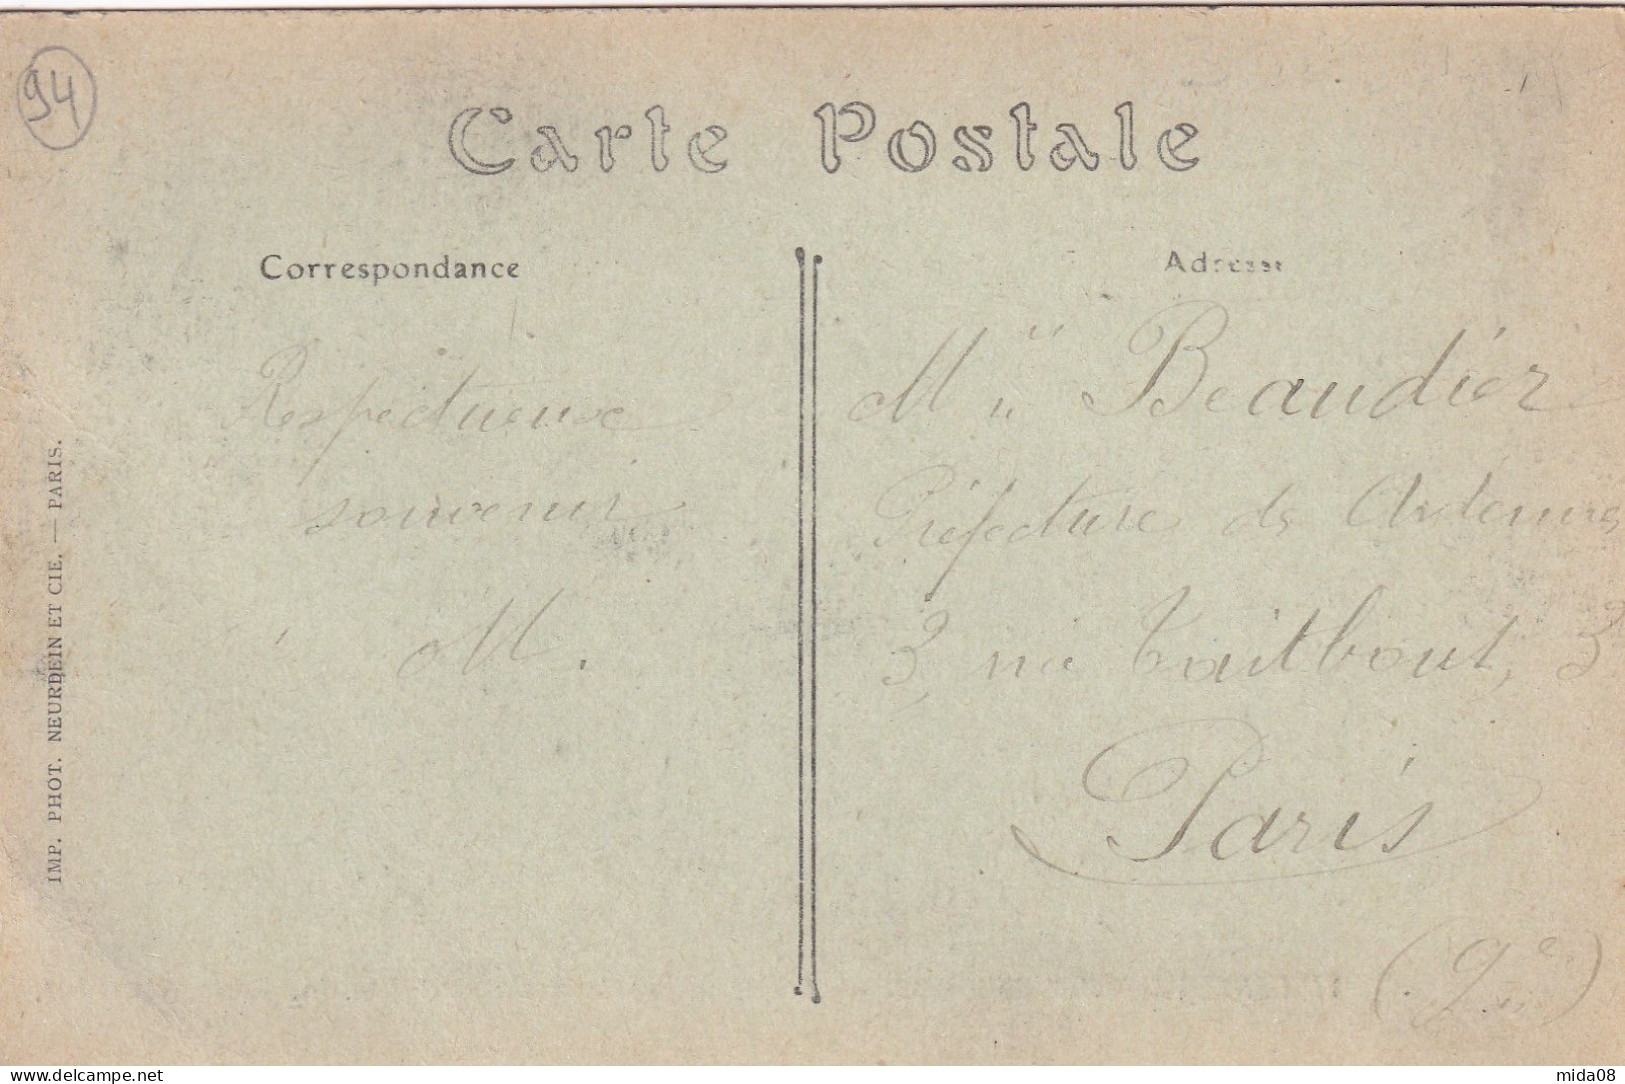 94
Carte Postale
Correspondance
Adresse
Respectueuse
souvenir
M.
Mlle Beaudier
Préfecture des Ardennes
3, rue Taitbout, 3
Paris
(9e)
IMP. PHOT. NEURDEIN ET CIE. — PARIS.
delcampe.net
mida08